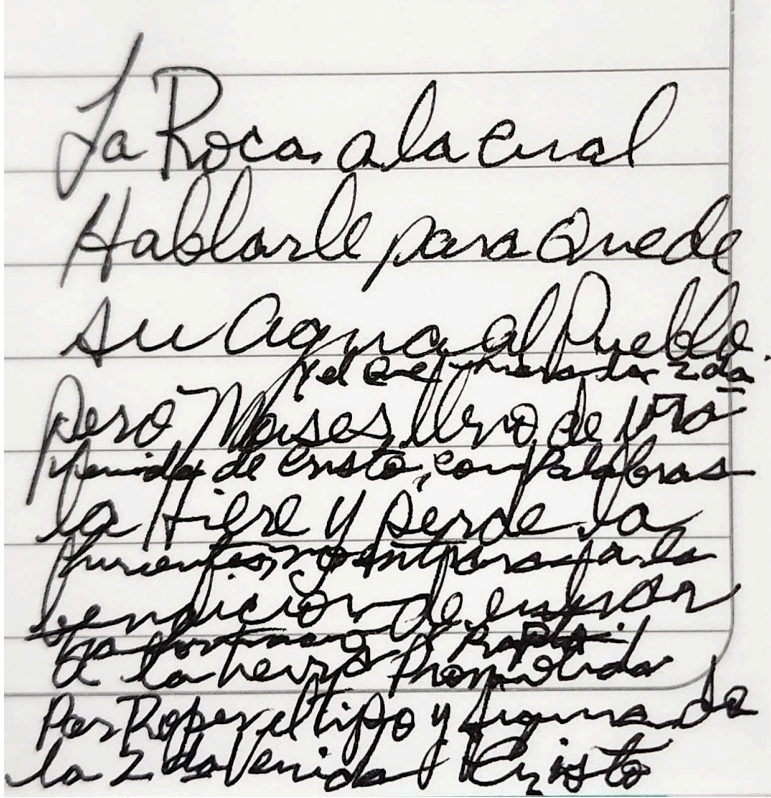 La Roca, a la cual
Hablarle para que de
su agua al Pueblo.
y el que hiera la 2da
Pero Moises, lleno de
Venida de Cristo, con Palabras
la Hiere y pierde la
no entrara a la
bendicion de entrar
a la tierra Prometida
Por Roper el tipo y figura de
la 2da Venida Cristo